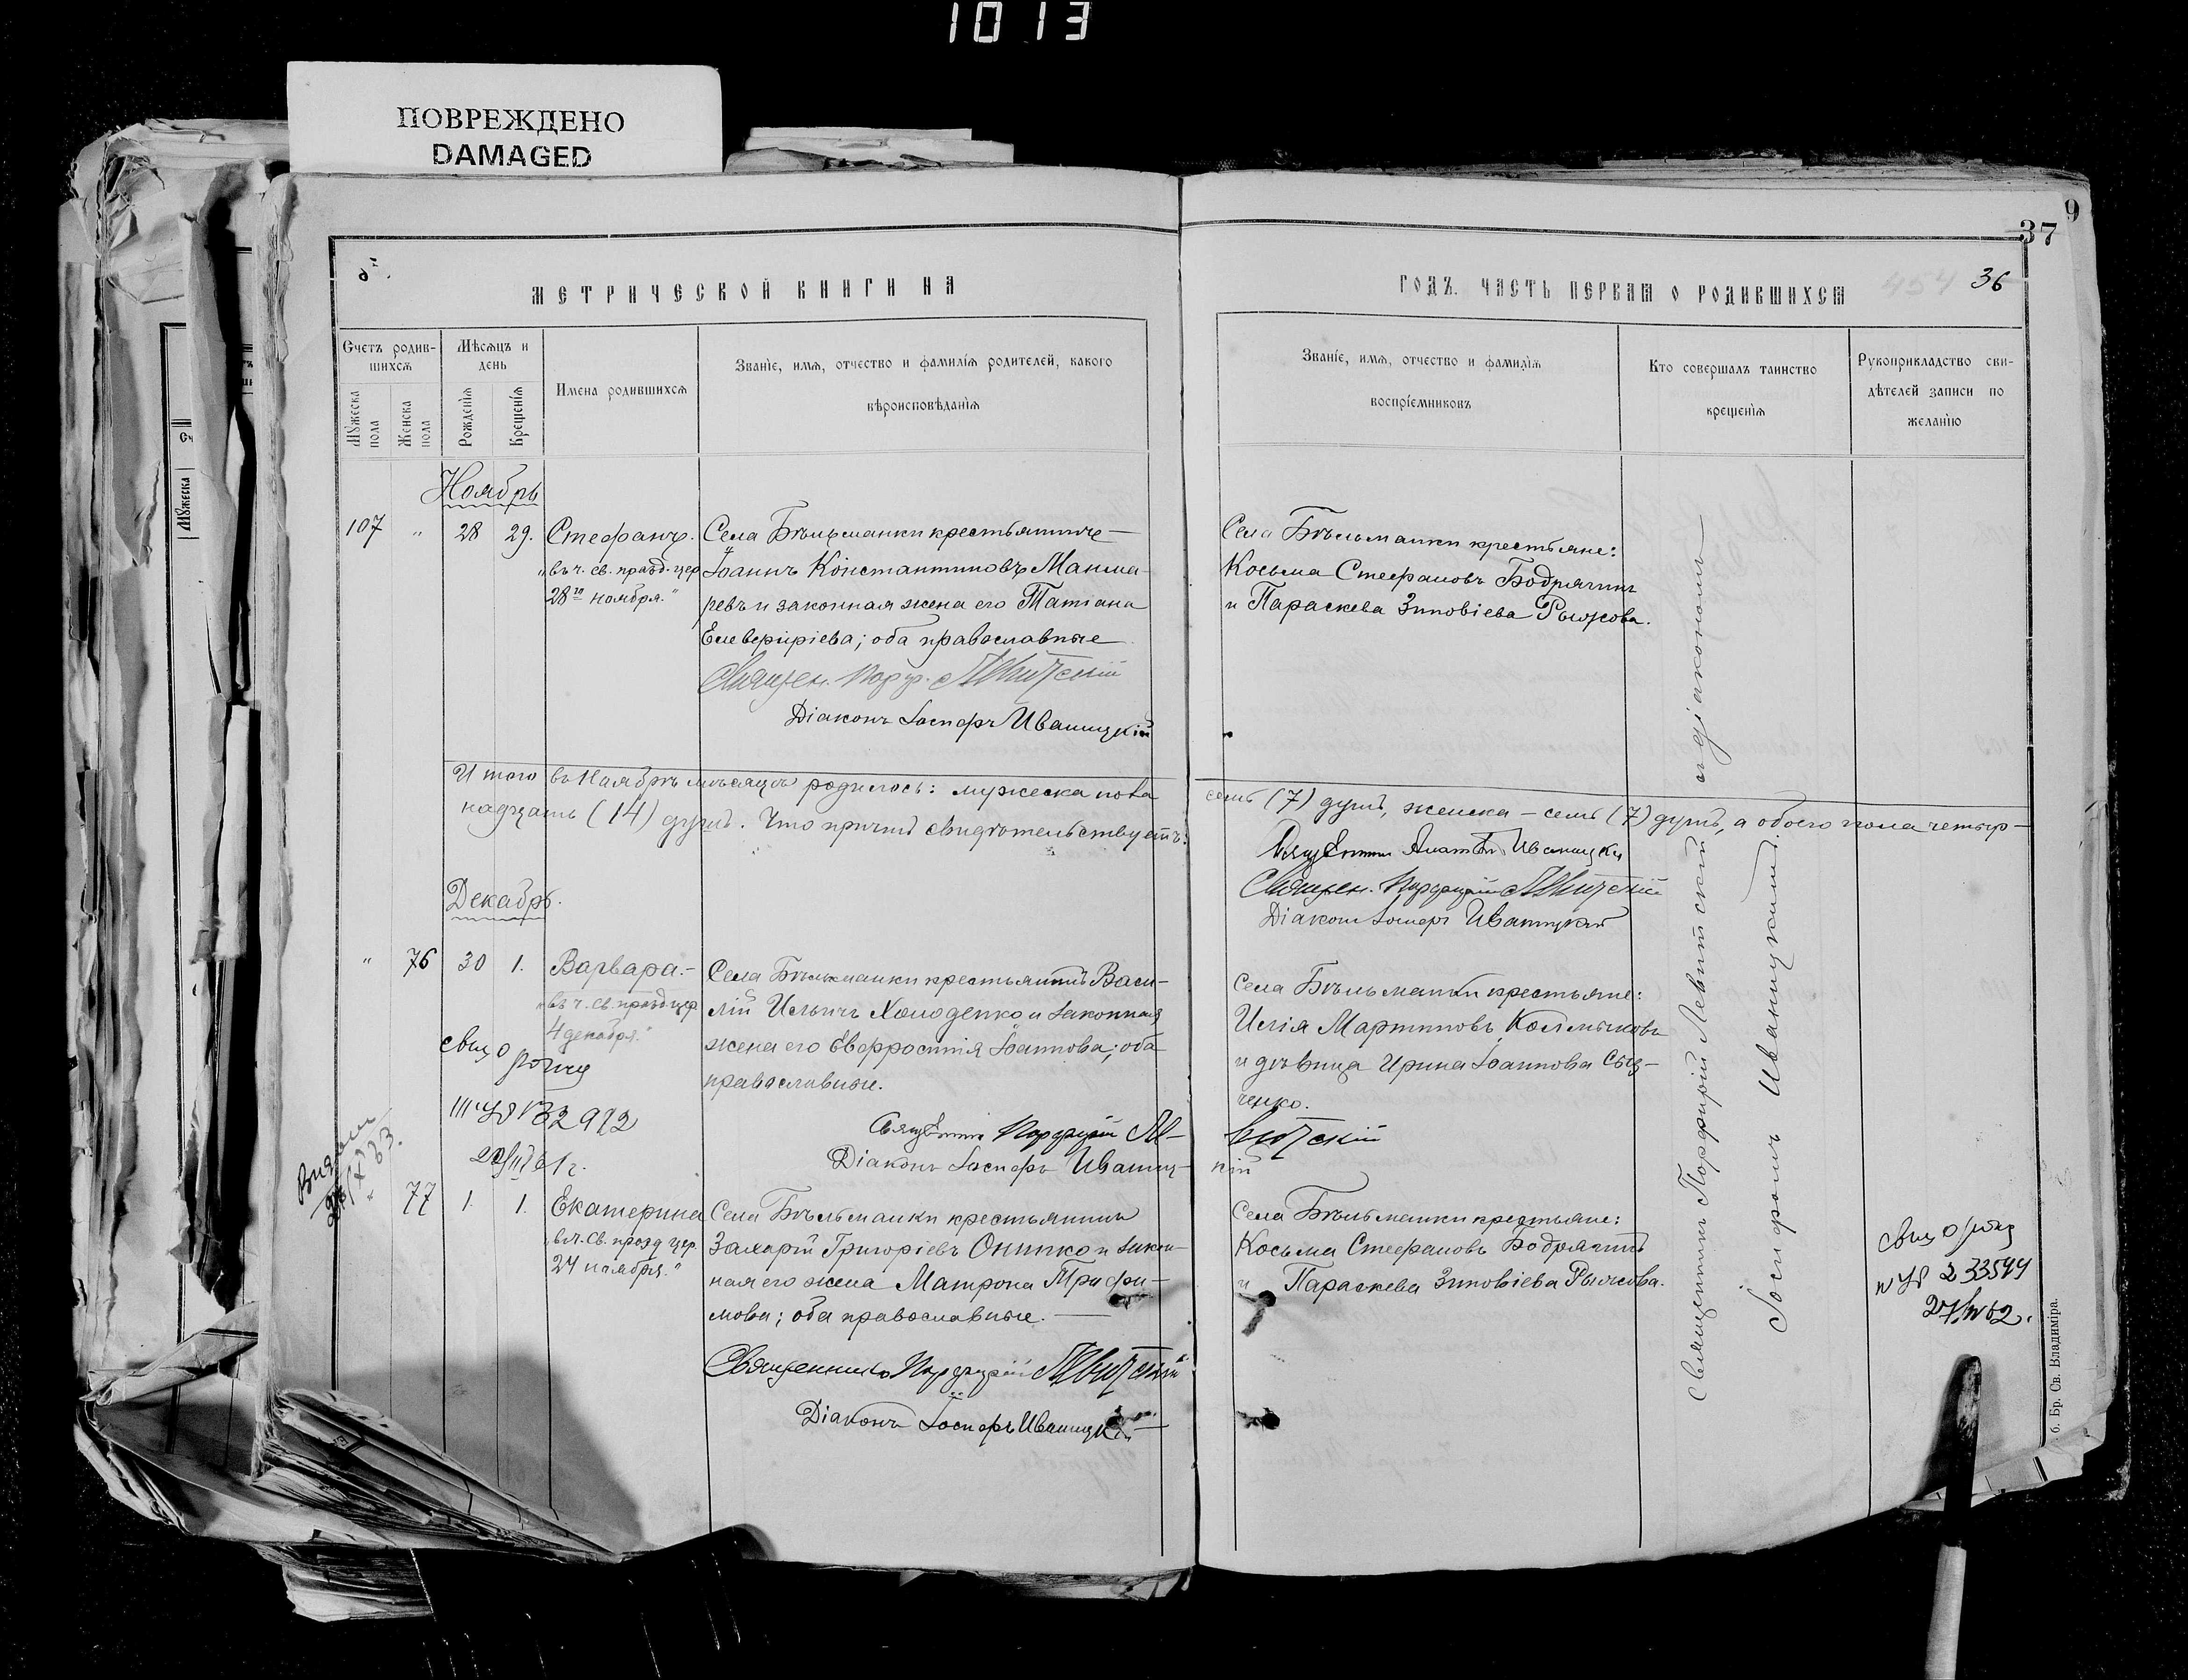 1013
ПОВРЕЖДЕНО
DAMAGED
9
37
МЕТРИЧЕСКОЙ КНИГИ НА
ГОДЪ. ЧАСТЬ ПЕРВАЯ О РОДИВШИХСЯ
454 36
Счетъ родив-
шихся
Мужеска пола
Женска пола
Мѣсяцъ и
день
Рожденія
Крещенія
Имена родившихся
Званіе, имя, отчество и фамилія родителей, какого
вѣроисповѣданія
Званіе, имя, отчество и фамилія
воспріемниковъ
Кто совершалъ таинство
крещенія
Рукоприкладство сви-
дѣтелей записи по
желанію
Мужеска
Ноябрь
107 " 28 29. Стефанъ.
"въ ч. св. празд. цер
28го ноября."
Села Бѣльманки крестьянинъ
Іоаннъ Константиновъ
и законная жена его Татіана
Елевѳеріева; оба православные
Священ. Порф. Левитскій
Діаконъ Іосифъ Иваницкій
Села Бѣльманки крестьяне:
Косьма Стефановъ Бодрягинъ
и Параскева Зиновіева Рыжова.
Итого въ Ноябрѣ мѣсяцѣ родилось: мужеска пола
семь (7) душъ, женска – семь (7) душъ, а обоего пола четыр-
надцать (14) душъ. Что причтъ свидѣтельствуетъ:
Иваницкій
Священ. Порфирій Левитскій
Діаконъ Іосифъ Иваницкій
Декабрь.
" 76 30 1. Варвара.-
"въ ч. св. празд. цер
4 декабря."
Села Бѣльманки крестьянинъ Васи-
лій Ильичъ Холоденко и законная
жена его Евфросинія Іоаннова; оба
православные.
Священникъ Порфирій Ле-
витскій
Діаконъ Іосифъ Иваниц-
кій
Села Бѣльманки крестьяне:
Илія Мартиновъ Колмыковъ
и дѣвица Ирина Іоаннова
ченко.
77 1. 1. Екатерина
"въ ч. св. празд. цер.
24 ноября."
Села Бѣльманки крестьянинъ
Захарій Григоріевъ Онипко и закон-
ная его жена Матрона Трифи-
мова; оба православные.
Священникъ Порфирій Левитскій
Діаконъ Іосифъ Иваницкій
Села Бѣльманки крестьяне:
Косьма Стефановъ Бодрягинъ
и Параскева Зиновіева Рыжова.
Священникъ Порфирій Левитскій съ діакономъ
Іосифомъ Иваницкимъ.
233599
б. Бр. Св. Владиміра.